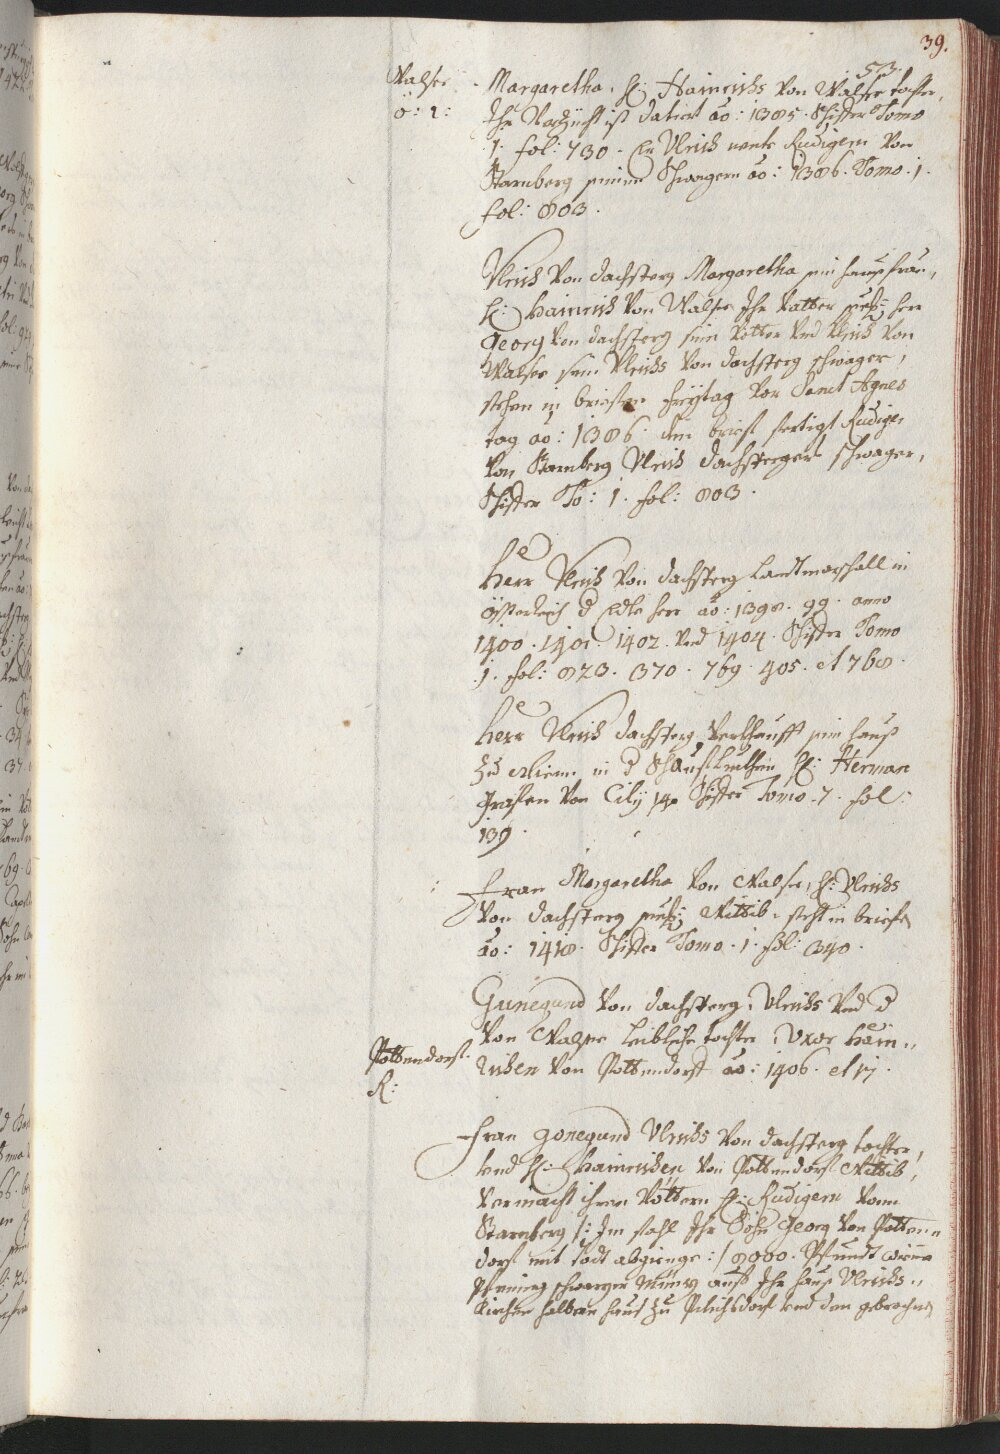 39.
53.
Walsee
ö: 2:
Margaretha, H: Hainrichs von Walsee tochter,
Ihr Verzücht ist datirt ao: 1385. Schister Tomo
1. fol: 730. Er Vlrich nente Rudigern von
Starnberg seinen Schwagern ao: 1386. Tomo. 1.
fol: 803.
Vlrich von Dachsberg Margaretha sein hausfrau,
H: Hainrich von Walsee Ihr vatter herr
Georg von Dachsberg sein Vötter vnd Vlrich von
Walsee sein Vlrichs von Dachsberg schwager,
stehen in brieffen freytag vor Sanct Agnes
tag ao: 1386. den brief fertigt Rudiger
von Starnberg Vlrich Dachspergers schwager,
Schister To: 1. fol: 803.
Herr Vlrich von Dachsberg Landtmarschall in
Össterreich d Edle herr ao: 1398. 99. anno
1400. 1401. 1402. vnd 1404. Schister Tomo
1. fol: 823. 370. 769. 405. et 768.
Herr Vlrich Dachsberg verkhaufft sein haus
zu Wienn in d H: Herman
Grafen von Cily Schister Tomo. 7. fol:
139.
Frau Margaretha von Walsee, H: Vlrichs
von Dachsberg Wittib, steht in briefen
ao: 1418. Schister Tomo. 1. fol: 340.
Gunegund von Dachsberg, Vlrichs vnd d
von Walsee leibliche tochter, Uxor Hain„
richen von Pottendorf ao: 1406. et 17.
Pottendorf.
R:
Frau Gonegund Vlrichs von Dachsberg tochter,
vnd H: Hainrichen von Pottendorf Wittib,
vermacht ihren Vöttern H: Rudigern von
Starnberg /: Im fahl Ihr Sohn Georg von Potten„
dorf mit todt abgienge :/ 8000. Pfundt wiene
Pfening schwarzer Münz auf Ihr haus Vlrichs„
kirchen halben haus zu Pilichsdorf vnd den gebrochen